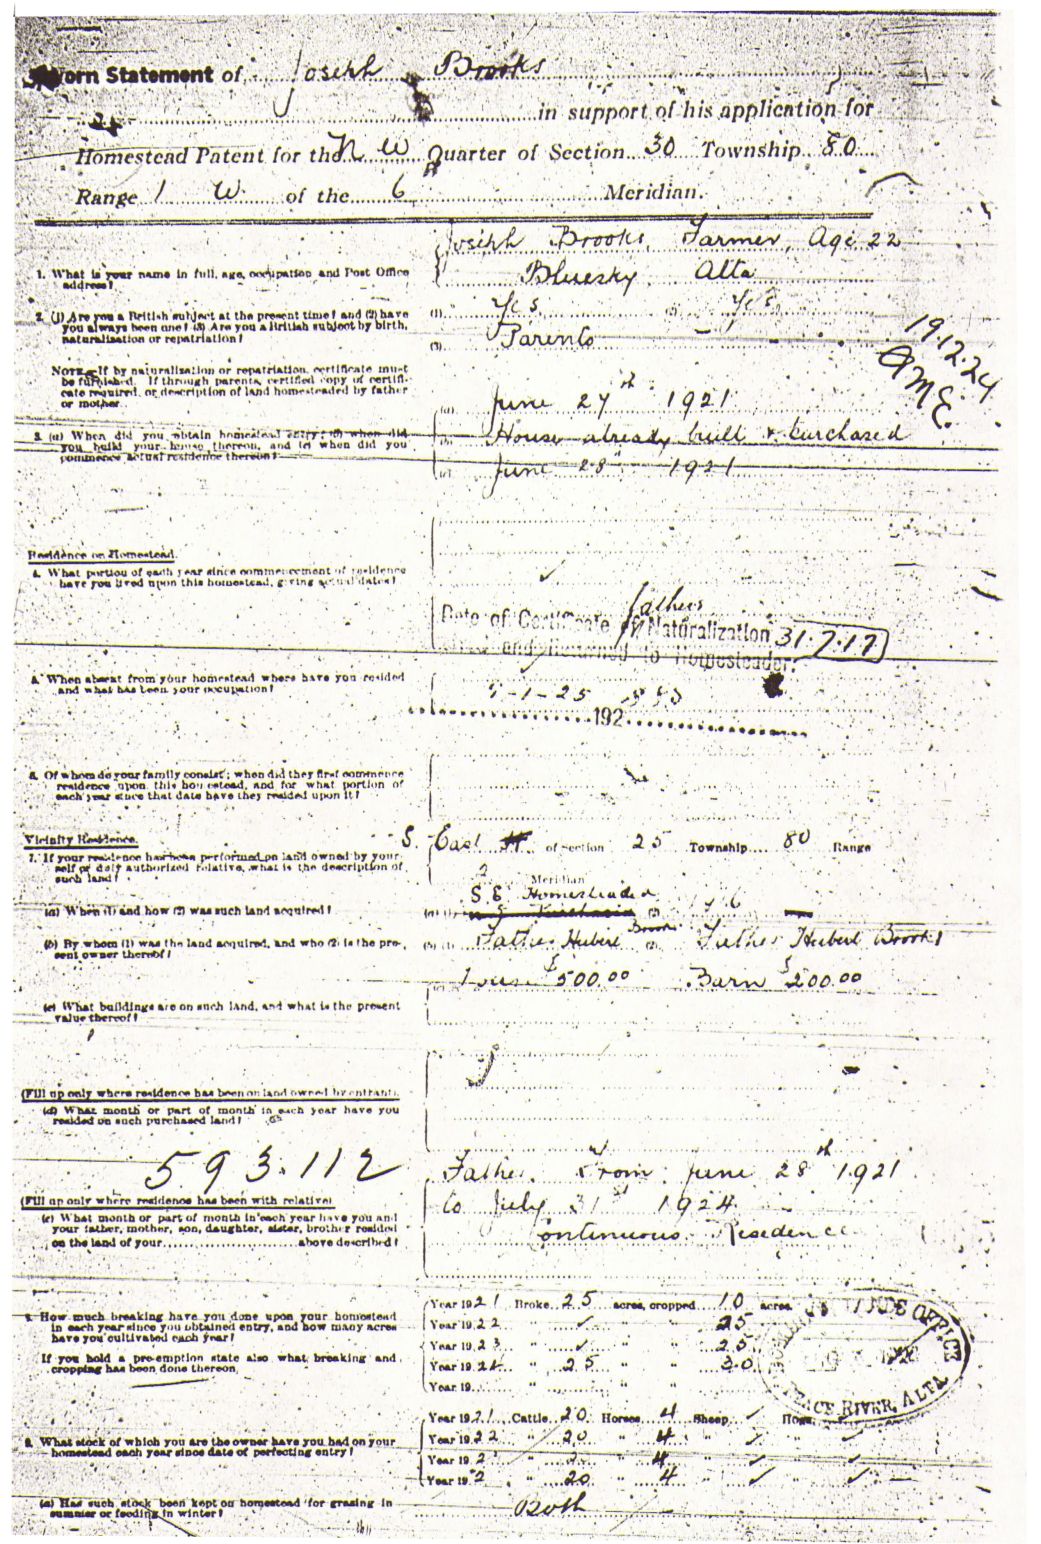 Sworn Statement of Joseph Brooks
in support of his application for
Homestead Patent for the N W Quarter of Section 30 Township 80
Range 1 W. of the 6 Meridian.
Joseph Brooks, Farmer, Age 22
1. What is your name in full, age, occupation and Post Office
address?
Bluesky Alta
2. (1) Are you a British subject at the present time? and (2) have
you always been one? (3) Are you a British subject by birth,
naturalisation or repatriation?
(1) Yes (2) Yes
(3) Parents
19.12.24
A.M.E.
NOTE—If by naturalization or repatriation, certificate must
be furnished. If through parents, certified copy of certifi-
cate required, or description of land homesteaded by father
or mother.
(a) June 27th 1921
3. (a) When did you obtain homestead entry; (b) when did
you build your house thereon, and (c) when did you
commence actual residence thereon?
(b) House already built & purchased
(c) June 28th 1921
Residence on Homestead.
4. What portion of each year since commencement of residence
have you lived upon this homestead, giving actual dates?
fathers
Date of Certificate of Naturalization 31.7.17
and Returned to Homesteader.
5. When absent from your homestead where have you resided
and what has been your occupation?
-1-25
192
6. Of whom do your family consist; when did they first commence
residence upon this homestead, and for what portion of
each year since that date have they resided upon it?
Vicinity Residence.
S. East of section 25 Township 80 Range
7. If your residence has been performed on land owned by your-
self or duly authorized relative, what is the description of
such land?
2 Meridian
S.E Homesteaded
(a) When (1) and how (2) was such land acquired?
(a) (1) (2)
(b) By whom (1) was the land acquired, and who (2) is the pre-
sent owner thereof?
(b) (1) Father Hubert Brooks (2) Father Hubert Brooks
(c) What buildings are on such land, and what is the present
value thereof?
(c) House $500.00 Barn $200.00
(Fill up only where residence has been on land owned by entrant).
(d) What month or part of month in each year have you
resided on such purchased land?
593.112
(Fill up only where residence has been with relative)
(e) What month or part of month in each year have you and
your father, mother, son, daughter, sister, brother resided
on the land of your above described?
Father. From June 28th 1921
to July 31st 1924
Continuous Residence
8. How much breaking have you done upon your homestead
in each year since you obtained entry, and how many acres
have you cultivated each year?
If you hold a pre-emption state also what breaking and
cropping has been done thereon.
Year 1921 Broke 25 acres, cropped 10 acres.
Year 1922 ✓ " " 25
Year 1923 ✓ " " 25
Year 1924 25 " " 30
Year 19 " " "
DOMINION LANDS OFFICE
PEACE RIVER, ALTA.
9. What stock of which you are the owner have you had on your
homestead each year since date of perfecting entry?
Year 1921 Cattle 20 Horses 4 Sheep ✓ Hogs
Year 1922 " 20 " 4 " ✓ " ✓
Year 192 " " 4 " ✓ " ✓
Year 192 " 20 " 4 ✓ " ✓
(a) Has such stock been kept on homestead for grazing in
summer or feeding in winter?
Both